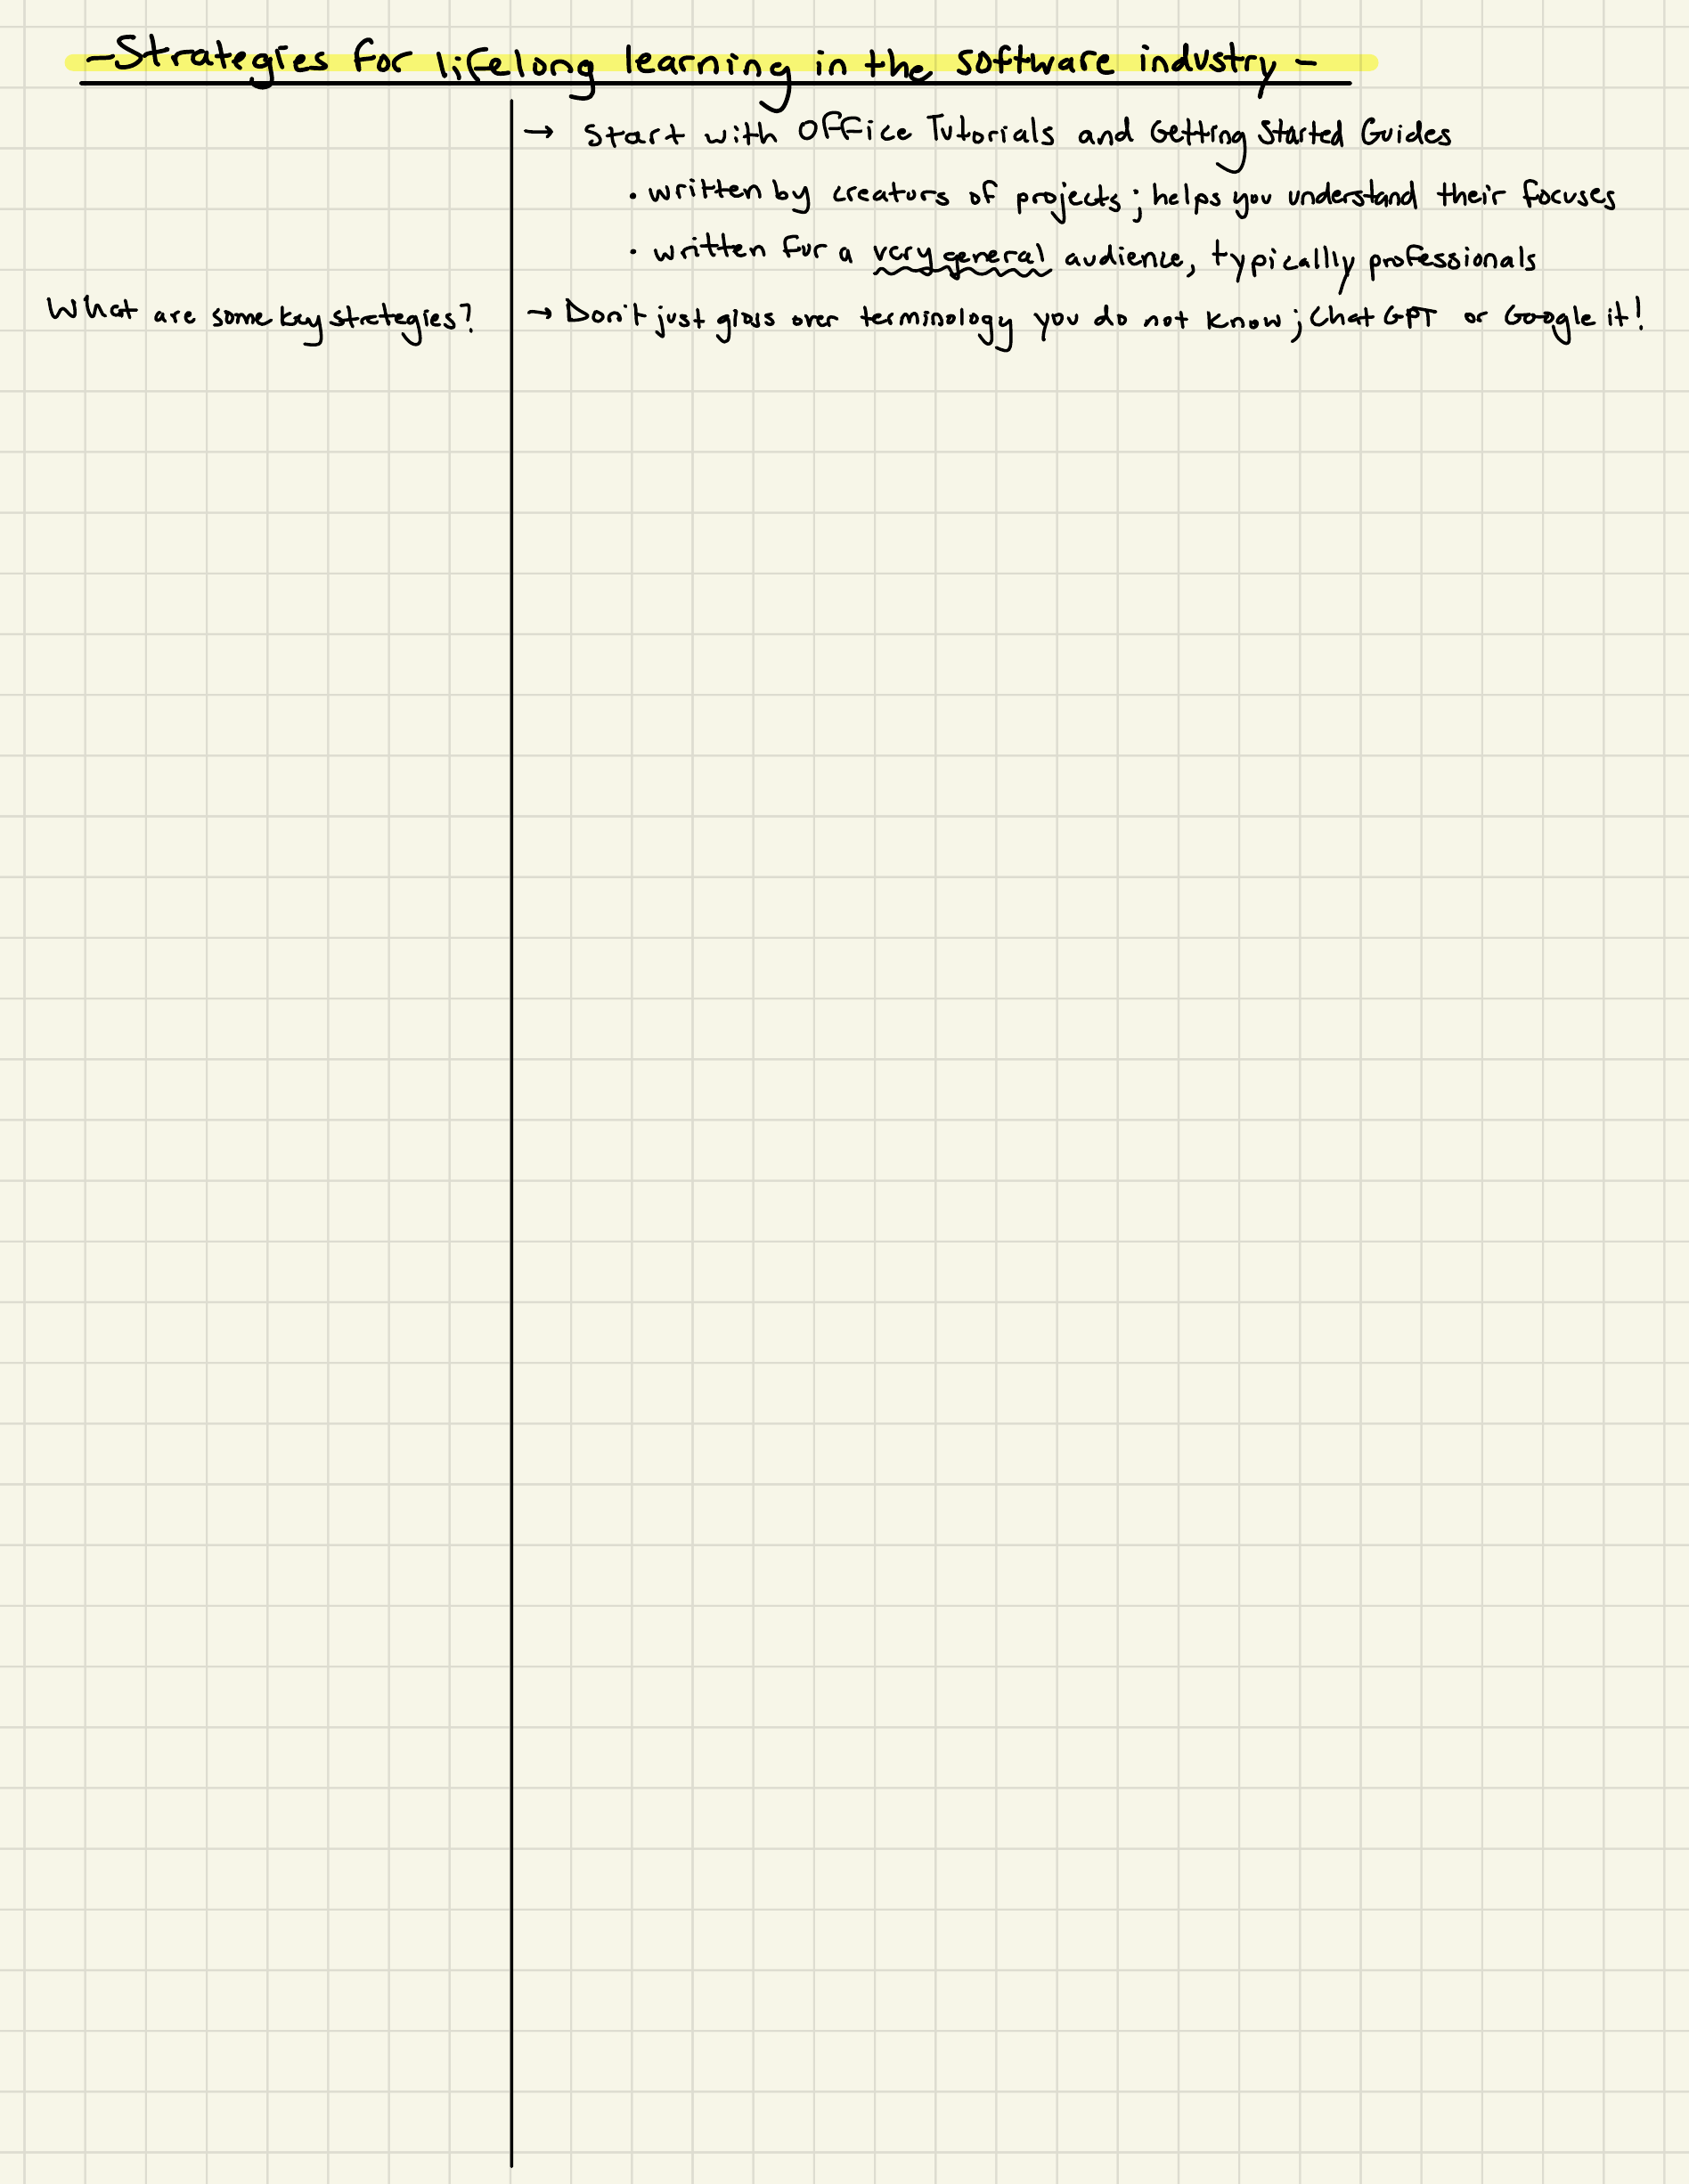 -Strategies for lifelong learning in the software industry-
→ Start with Office Tutorials and Getting Started Guides
• written by creators of projects; helps you understand their focuses
• written for a very general audience, typically professionals
What are some key strategies?
→ Don't just gloss over terminology you do not know; ChatGPT or Google it!